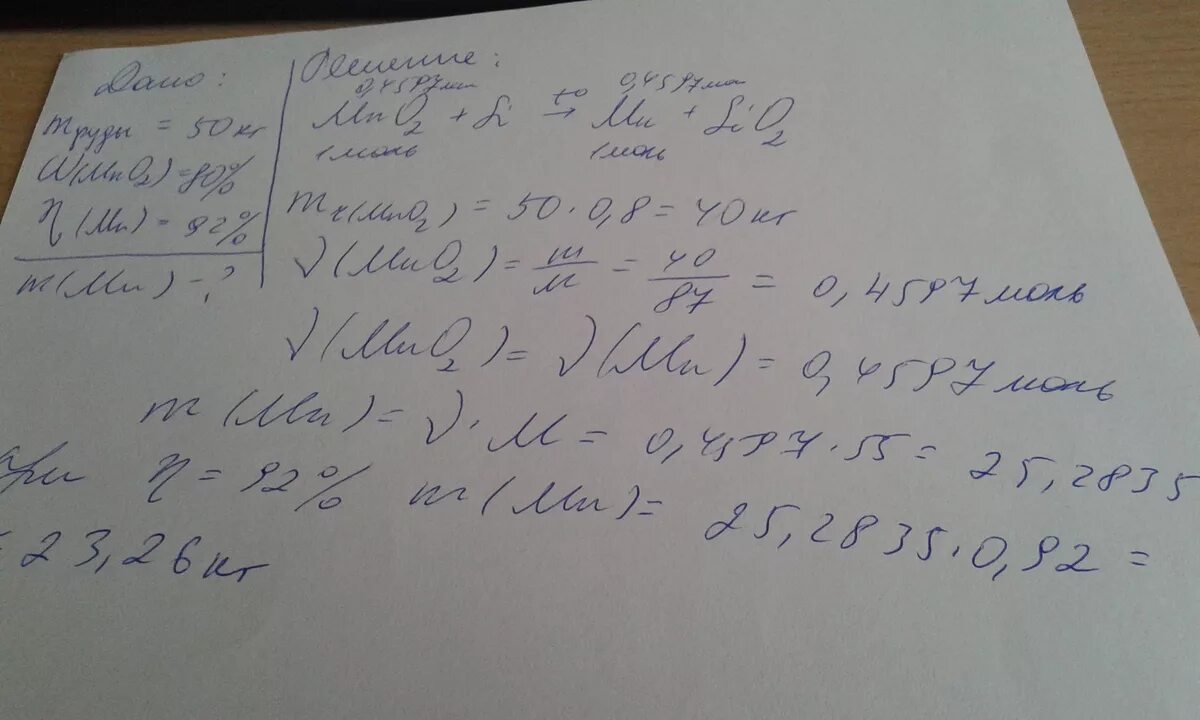 Дано:
m руды = 50 кг
W(MnO₂) = 80%
η(Mn) = 92%
m(Mn) - ?
Решение:
0,4597 мол 0,4597 мол
MnO₂ + Si t° → Mn + SiO₂
1 моль 1 моль
m t(MnO₂) = 50 · 0,8 = 40 кг
ν(MnO₂) = m/M = 40/87 = 0,4597 моль
ν(MnO₂) = ν(Mn) = 0,4597 моль
m(Mn) = ν · M = 0,4597 · 55 = 25,2835
при η = 92% m(Mn) = 25,2835 · 0,92 =
= 23,26 кг